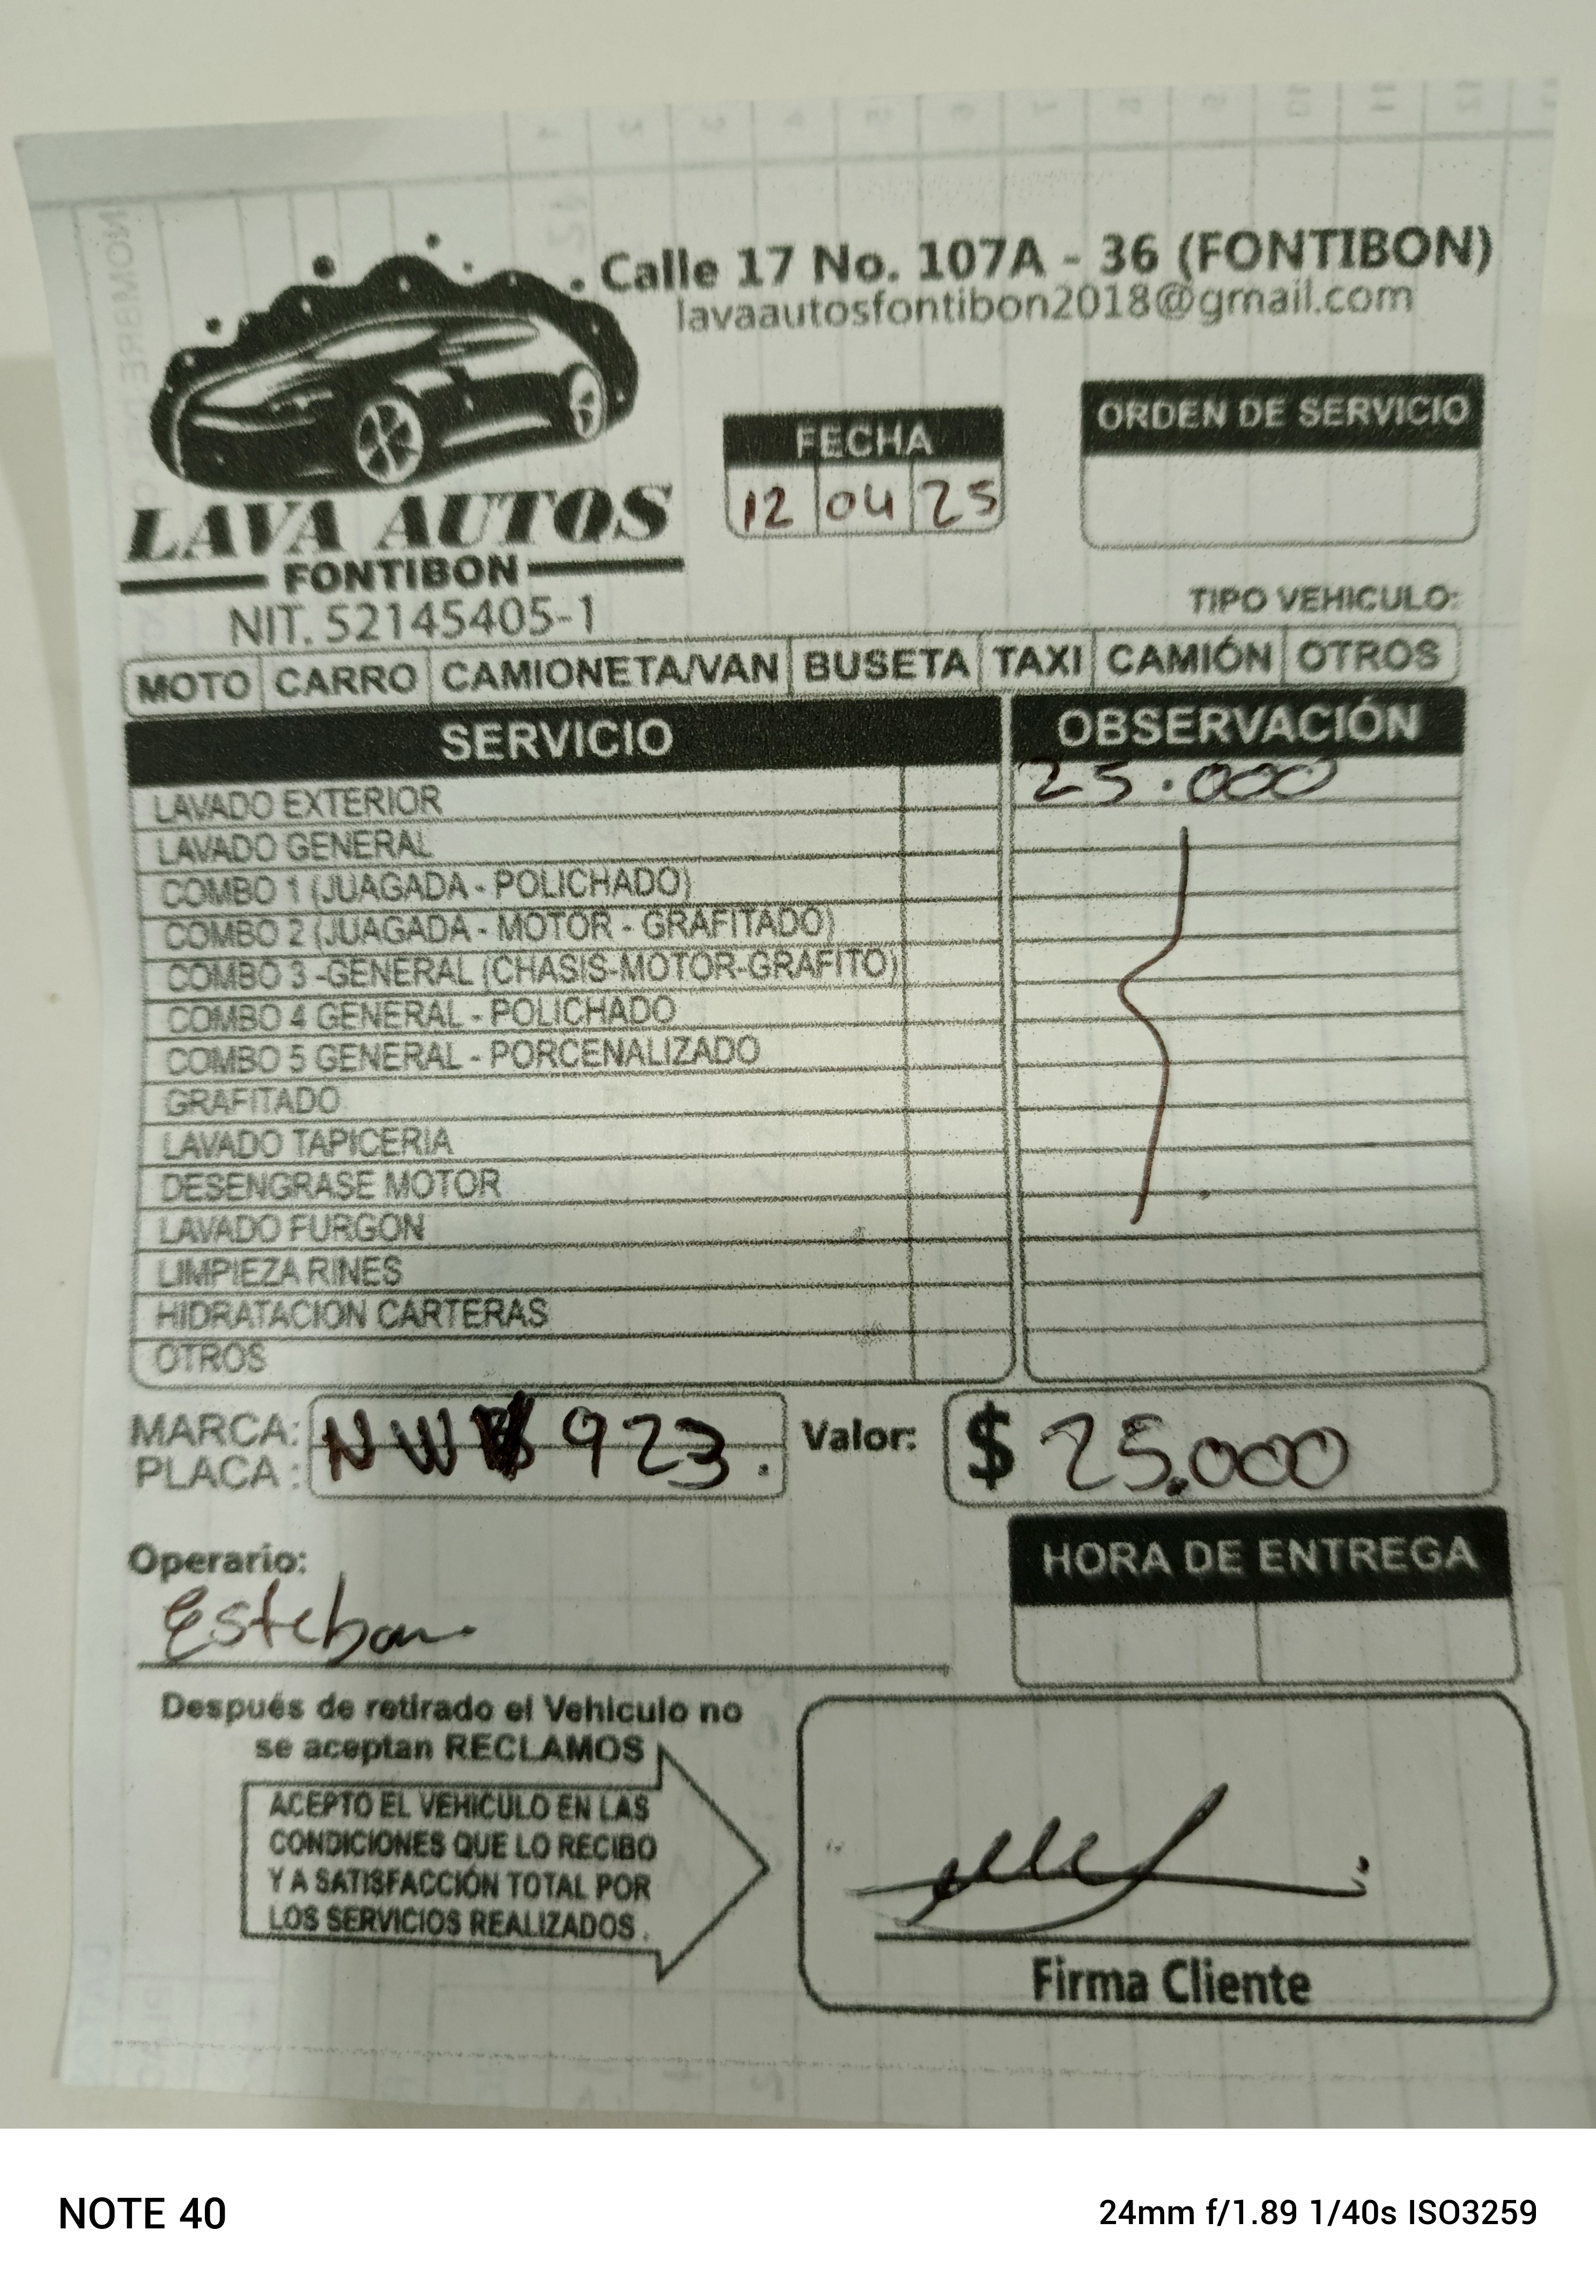 Calle 17 No. 107A - 36 (FONTIBON)
lavaautosfontibon2018@gmail.com
LAVA AUTOS
FONTIBON
NIT. 52145405-1
FECHA
12 04 25
ORDEN DE SERVICIO
TIPO VEHICULO:
MOTO CARRO CAMIONETA/VAN BUSETA TAXI CAMIÓN OTROS
SERVICIO
OBSERVACIÓN
LAVADO EXTERIOR 25.000
LAVADO GENERAL
COMBO 1 (JUAGADA - POLICHADO)
COMBO 2 (JUAGADA - MOTOR - GRAFITADO)
COMBO 3 -GENERAL (CHASIS-MOTOR-GRAFITO)
COMBO 4 GENERAL - POLICHADO
COMBO 5 GENERAL - PORCENALIZADO
GRAFITADO
LAVADO TAPICERIA
DESENGRASE MOTOR
LAVADO FURGON
LIMPIEZA RINES
HIDRATACION CARTERAS
OTROS
MARCA:
PLACA : 923. Valor: $ 25.000
Operario:
Esteban
HORA DE ENTREGA
Después de retirado el Vehiculo no
se aceptan RECLAMOS
ACEPTO EL VEHICULO EN LAS
CONDICIONES QUE LO RECIBO
Y A SATISFACCIÓN TOTAL POR
LOS SERVICIOS REALIZADOS .
Firma Cliente
NOTE 40
24mm f/1.89 1/40s ISO3259